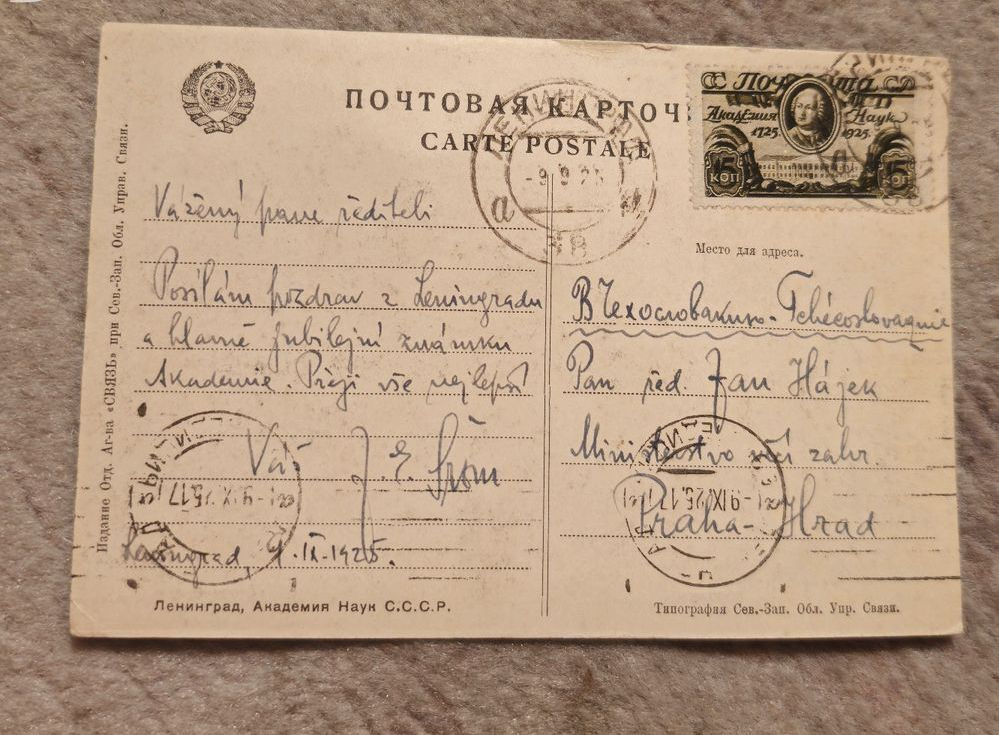 ПОЧТОВАЯ КАРТОЧ
CARTE POSTALE
Почта
Академия Наук
1725 1925
15 КОП 15 КОП
ЛЕНИНГРАД
-9.9.25
а
Место для адреса.
Vážený pane řediteli
Posílám pozdrav z Leningradu
a hlavně jubilejní známku
Akademie. Přeji vše nejlepší
Váš J. E. Šrom
Leningrad, 9.IX.1925.
В Чехословакию - Tchécoslovaquie
Pan řed. Jan Hájek
Ministerstvo věcí zahr.
Praha - Hrad
-9 IX 25.17
-9 IX 25.17
Ленинград, Академия Наук С.С.С.Р.
Типография Сев.-Зап. Обл. Упр. Связи.
Издание Отд. Аг-ва «СВЯЗЬ» при Сев.-Зап. Обл. Управ. Связи.